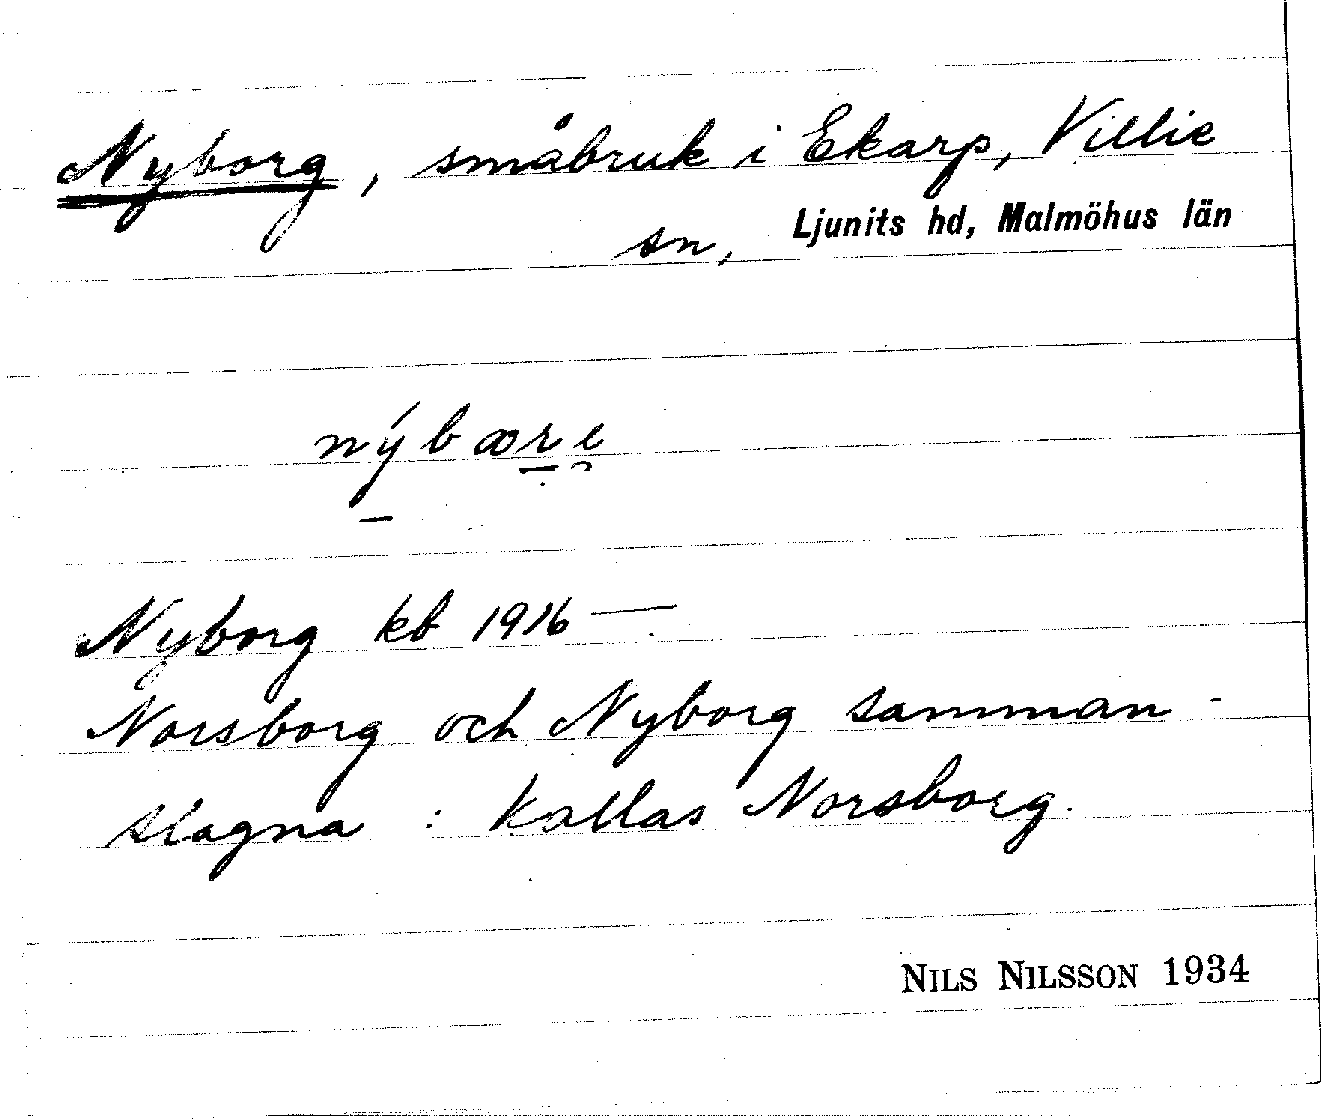 Nyborg, småbruk i Ekarp, Villie
sn, Ljunits hd, Malmöhus län
nýbœre
Nyborg kb 1916 —
Norsborg och Nyborg samman-
slagna : kallas Norsborg.
NILS NILSSON 1934